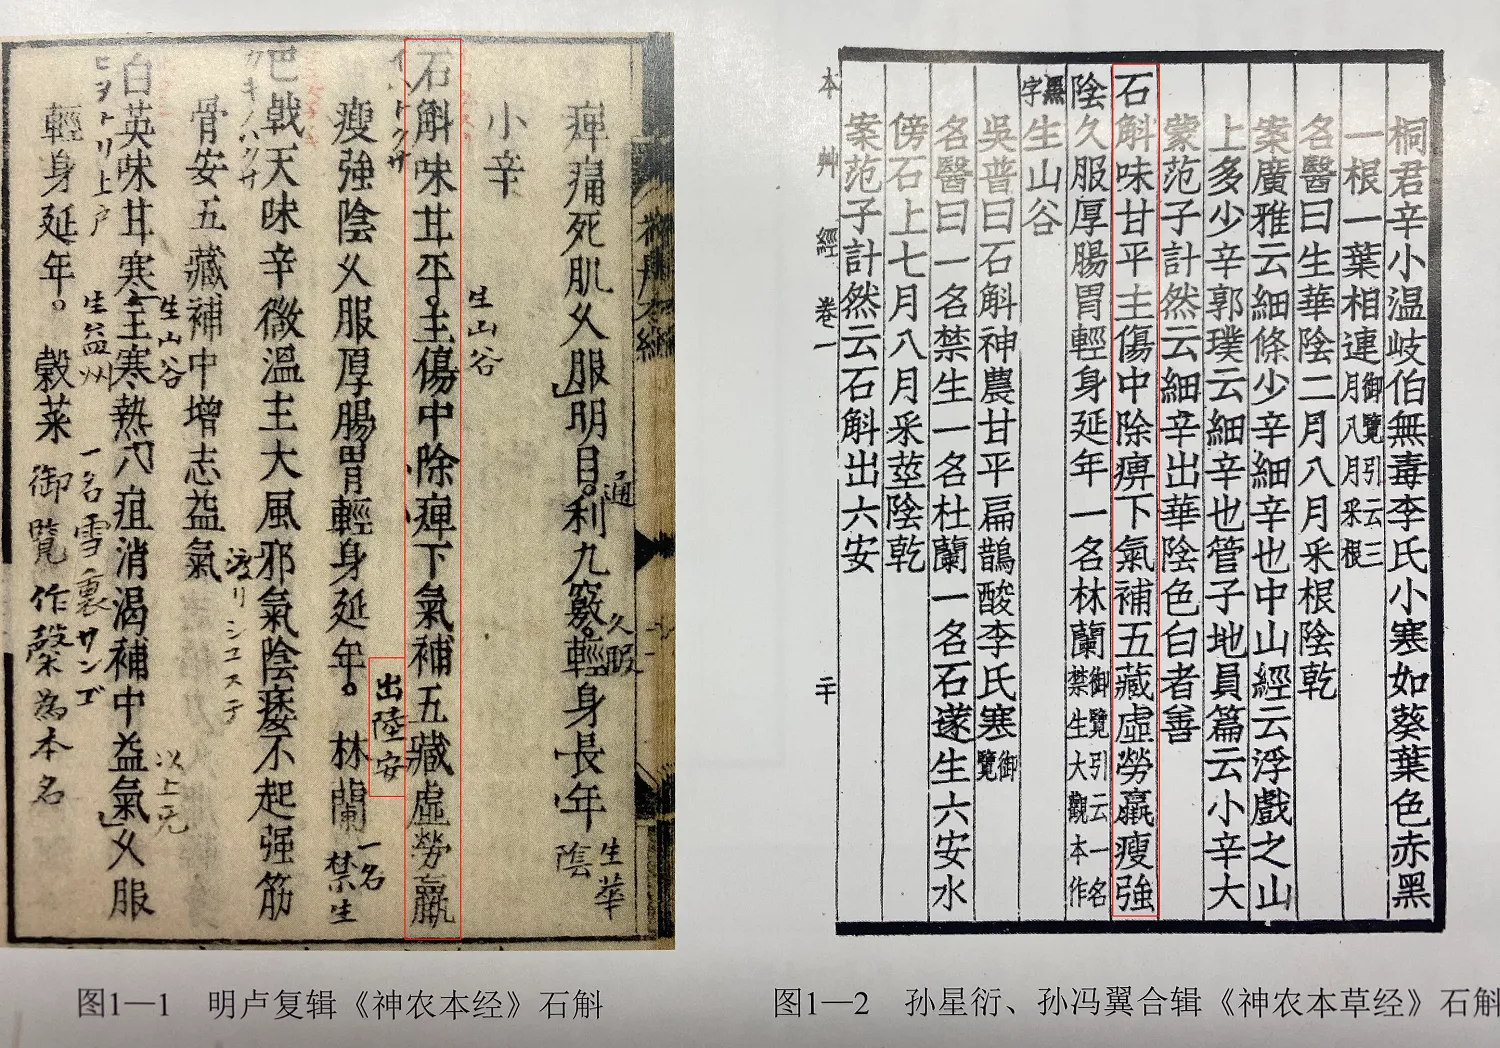 痺痛死肌久服明目利九竅輕身長年
通
久服
生華
陰
小辛
生山谷
石斛味甘平。主傷中除痺下氣補五藏虛勞羸
出陸安
瘦強陰久服厚腸胃輕身延年。林蘭
一名
禁生
巴戟天味辛微溫主大風邪氣陰痿不起强筋
骨安五藏補中增志益氣
渡リシコステ
白英味甘寒主寒熱八疽消渴補中益氣久服
生山谷
以上元
生益州
一名雪裏サンゴ
ヒヲトリ上戸
輕身延年。穀菜
御覽作穀菜為本名
桐君辛小温岐伯無毒李氏小寒如葵葉色赤黑
一根一葉相連御覽引云三月八月采根
名醫曰生華陰二月八月采根陰乾
案廣雅云細條少辛細辛也中山經云浮戲之山
上多少辛郭璞云細辛也管子地員篇云小辛大
蒙范子計然云細辛出華陰色白者善
石斛味甘平主傷中除痹下氣補五藏虛勞羸瘦強
陰久服厚腸胃輕身延年一名林蘭御覽引云一名禁生大觀本作
黑字
生山谷
吳普曰石斛神農甘平扁鵲酸李氏寒御覽
名醫曰一名禁生一名杜蘭一名石蓫生六安水
傍石上七月八月采莖陰乾
案范子計然云石斛出六安
本艸經卷一
二十
图1—1 明卢复辑《神农本经》石斛
图1—2 孙星衍、孙冯翼合辑《神农本草经》石斛